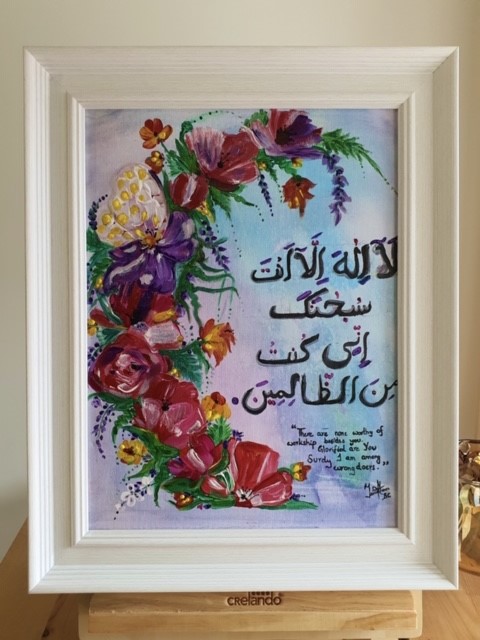 لَا إِلٰهَ إِلَّا أَنْتَ
سُبْحٰنَكَ
إِنِّي كُنْتُ
مِنَ الظَّالِمِينَ.
"There are none worthy of
worship besides you.
Glorified are You
Surely I am among
wrongdoers."
CRelando